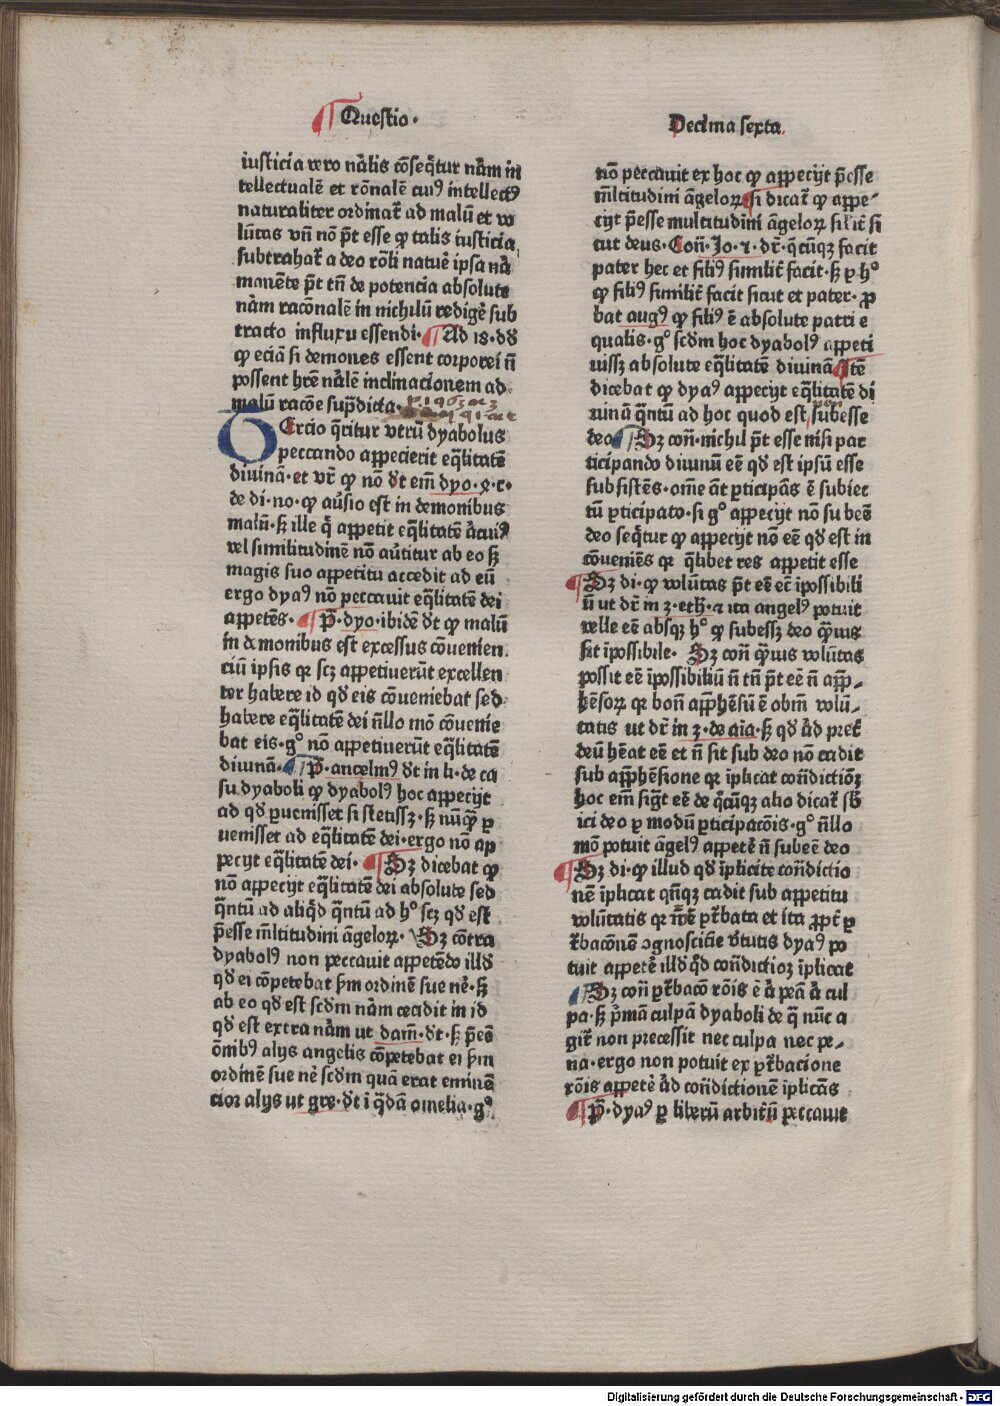 Questio.
iusticia vero nãlis cõseq̃tur nãm in
tellectualẽ et rõnalẽ cuiꝰ intellectꝰ
naturaliter ordinat̃ ad malũ et vo
lũtas vñ nõ p̃t esse ꝙ talis iusticia
subtrahat̃ a deo rõli natuẽ ipsa nã
manẽte p̃t tñ de potencia absoluta
nãm racõnalẽ in nichilũ redigẽ sub
tracto influxu essendi. Ad 18. dõ
ꝙ eciã si demones essent corporei ñ
possent hrẽ nãlẽ inclinacionem ad
malũ racõe sup̃dicta.
TErcio q̃ritur vtrũ dyabolus
peccando appecierit eq̃litatẽ
diuinã. et vr̃ ꝙ nõ õt em̃ dyo. 4. c.
de di. no. ꝙ aũsio est in demonibus
malũ. sꝫ ille q̃ appetit eq̃litatẽ ãcuiꝰ
vel similitudinẽ nõ aũtitur ab eo sꝫ
magis suo appetitu accedit ad eũ
ergo dyaꝰ nõ peccauit eq̃litatẽ dei
appetẽs. P̃. dyo. ibidẽ õt ꝙ malũ
in demonibus est excessus cõuenien
ciũ ipsis qr̃ scꝫ appetiuerũt excellen
ter habere id qõ eis cõueniebat sed
habere eq̃litatẽ dei ñllo mõ cõuenie
bat eis. gͦ nõ appetiuerũt eq̃litatẽ
diuinã. P̃. ancelmꝰ õt in li. de ca
su dyaboli ꝙ dyabolꝰ hoc appecijt
ad qõ ꝑuenisset si stetissꝫ. sꝫ nũq̃ ꝑ
uenisset ad eq̃litatẽ dei. ergo nõ ap
pecijt eq̃litatẽ dei. Sꝫ dicebat ꝙ
nõ appecijt eq̃litatẽ dei absolute sed
q̃ntũ ad aliq̃d q̃ntũ ad hͦ scꝫ qõ est
p̃esse m̃ltitudini ãgeloꝝ. Sꝫ cõtra
dyabolꝰ non peccauit appetẽdo illõ
qõ ei cõpetebat ẜm ordinẽ sue nẽ. sꝫ
ab eo qõ est scõm nãm cecidit in id
qõ est extra nãm ut dam̃. õt. sꝫ p̃eẽ
õnibꝰ alijs angelis cõpetebat ei ẜm
ordinẽ sue nẽ scõm quã erat eminẽ
cior alijs ut gre. õt ĩ q̃dã omelia. gͦ
Decima sexta.
nõ peccauit ex hoc ꝙ appecijt p̃esse
m̃ltitudini ãgeloꝝ si dicat̃ ꝙ appe⸗
cijt p̃esse multitudini ãgeloꝝ silit̃ si
cut deus. Coñ. Jo. 4. dr̃. q̃cũqꝫ facit
pater hec et filiꝰ similit̃ facit. sꝫ ꝑ hͦ
ꝙ filiꝰ similit̃ facit sicut et pater. ꝓ
bat augꝰ ꝙ filiꝰ ẽ absolute patri e
qualis. gͦ scõm hoc dyabolꝰ appeti
uissꝫ absolute eq̃litatẽ diuinã Itẽ
dicebat ꝙ dyaꝰ appecijt eq̃litatẽ di
uinã q̃ntũ ad hoc quod est non subesse
deo Sꝫ coñ. nichil p̃t esse nisi par
ticipando diuinũ eẽ qõ est ipsũ esse
subsistẽs. om̃e ãt ꝑticipãs ẽ subiec
tũ ꝑticipato. si gͦ appecijt nõ subeẽ
deo seq̃tur ꝙ appecijt nõ eẽ qõ est in
cõueniẽs qr̃ q̃libet res appetit esse
Sꝫ di. ꝙ volũtas p̃t eẽ ec̃ ĩpossibili
ũ ut dr̃ in 3. eth. 4 ita angelꝰ potuit
velle eẽ absqꝫ hͦ ꝙ subessꝫ deo q̃uis
sit ĩpossibile. Sꝫ coñ q̃uis volũtas
possit eẽ ĩpossibiliũ ñ tñ p̃t eẽ ñ app̃⸗
hẽsoꝝ qr̃ boñ app̃hẽsũ ẽ obm̃ volũ⸗
tatis ut dr̃ in 3. de aĩa. sꝫ qõ ãd pret̃
deũ hẽat eẽ et ñ sit sub deo nõ cadit
sub app̃hẽsione qr̃ ĩplicat coñdictiõꝫ
hoc em̃ sig̃t eẽ de q̃cũqꝫ alio dicat̃ sb̃
ici deo ꝑ modũ ꝑticipacõis. gͦ ñllo
mõ potuit ãgelꝰ appetẽ ñ subeẽ deo
Sꝫ di. ꝙ illud qõ ĩplicite coñdictio
nẽ ĩplicat qñqꝫ cadit sub appetitu
volũtatis qr̃ m̃ẽ ꝑt̃bata et ita ꝓpt̃ ꝑ
t̃bacõnẽ ↄgnoscitĩe ṽtutis dyaꝰ po
tuit appetẽ illõ q̃d coñdictioꝫ ĩplicat
Sꝫ coñ ꝑt̃bacõ rõis ẽ ã peã ã cul
pa. sꝫ p̃mã culpã dyaboli de q̃ nũc a
git̃ non precessit nec culpa nec pe⸗
na. ergo non potuit ex ꝑt̃bacione
rõis appetẽ ãd coñdictionẽ ĩplicãs
P̃. dyaꝰ ꝑ liberũ arbit̃ũ peccauit
Digitalisierung gefördert durch die Deutsche Forschungsgemeinschaft - DFG